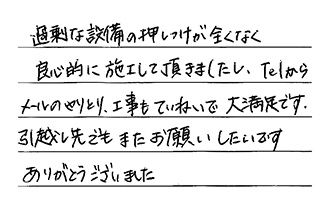 過剰な設備の押しつけが全くなく
良心的に施工して頂きましたし、Telから
メールのやりとり、工事もていねいで大満足です.
引越し先でもまたお願いしたいです
ありがとうございました